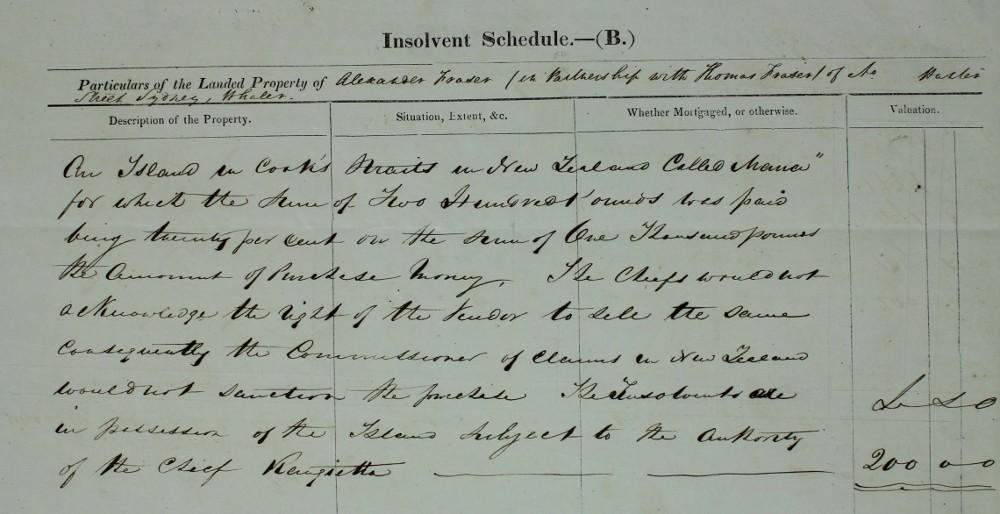 Insolvent Schedule.—(B.)
Particulars of the Landed Property of Alexander Fraser (in Partnership with Thomas Fraser) of No Hunter
Street Sydney, Whaler.
Description of the Property. Situation, Extent, &c. Whether Mortgaged, or otherwise. Valuation.
An Island in Cook's Straits in New Zealand Called Mana"
for which the Sum of Two Hundred Pounds was paid
being twenty per cent on the sum of One Thousand pounds
the Amount of Purchase Money, The Chiefs would not
acknowledge the right of the Vendor to sell the same
consequently the Commissioner of Claims in New Zealand
would not sanction the purchase The Insolvents are
in possession of the Island subject to the Authority £ s D
of the Chief 200 0 0